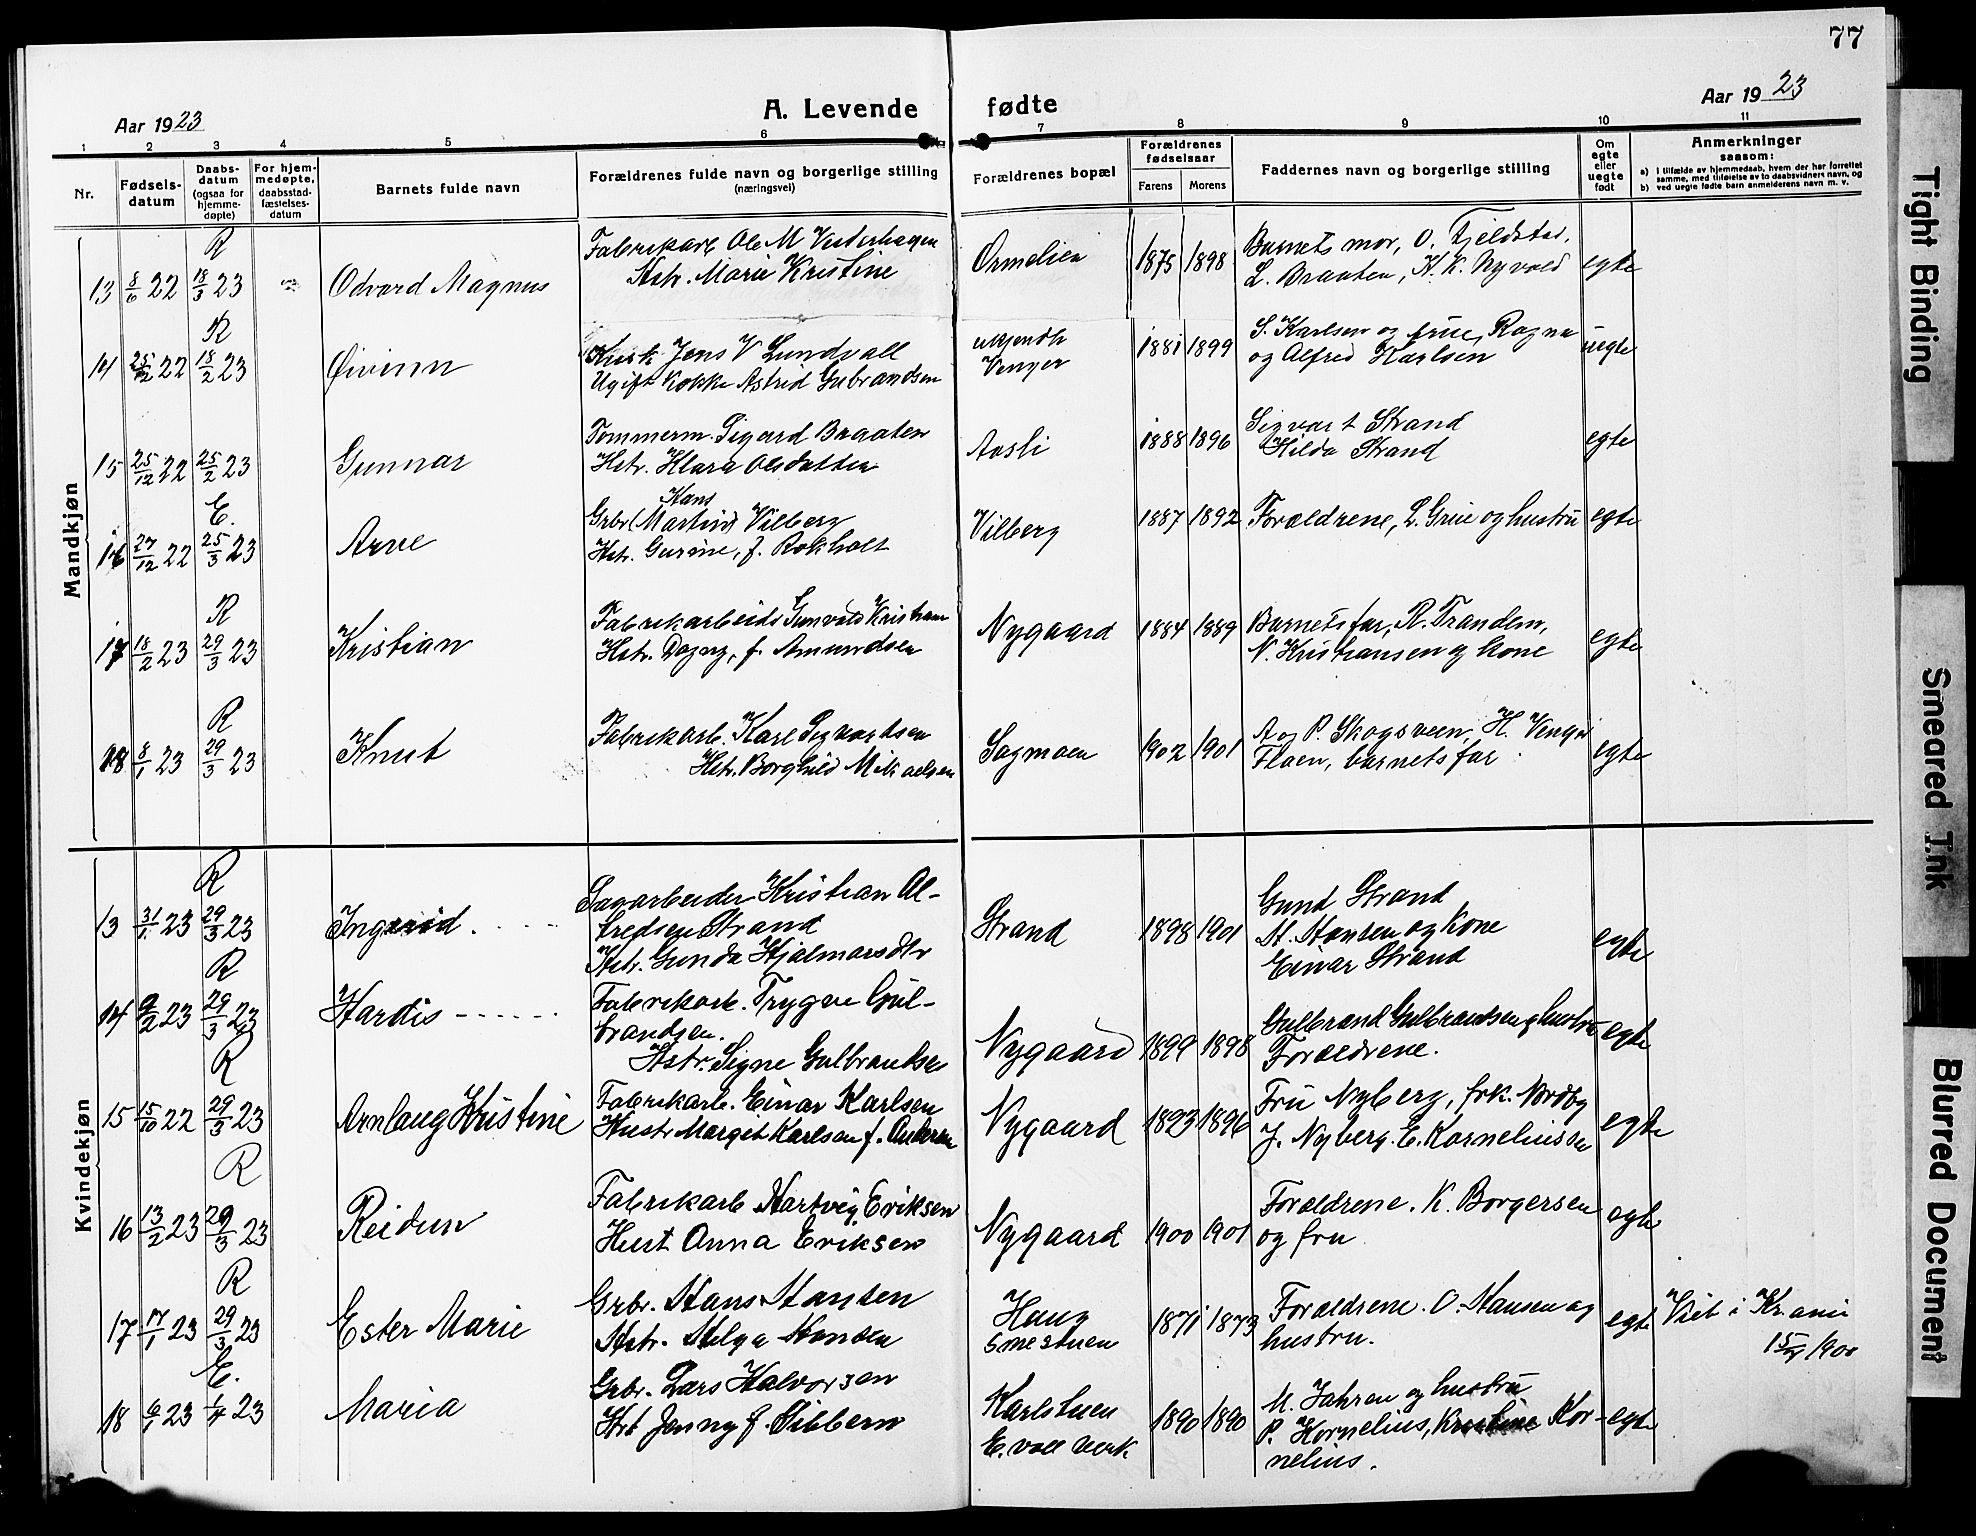 77
Aar 1923
A. Levende fødte
Aar 1923
1 2 3 4 5 6 7 8 9 10 11
Nr.
Fødsels-
datum
Daabs-
datum
(ogsaa for
hjemme-
døpte)
For hjem-
medøpte,
daabsstad-
fæstelses-
datum
Barnets fulde navn
Forældrenes fulde navn og borgerlige stilling
(næringsvei)
Forældrenes bopæl
Forældrenes
fødselsaar
Farens Morens
Faddernes navn og borgerlige stilling
Om
egte
eller
uegte
født
Anmerkninger
saasom:
a) I tilfælde av hjemmedaab, hvem der har forrettet
samme, med tilføielse av to daabsvidners navn, og
b) ved uegte fødte barn anmelderens navn m. v.
Mandkjøn
R
13 8/6 22 18/3 23 Odvard Magnus
Fabrikarb Ole M Vesterhagen
Hstr. Marie Kristine
Ormelien 1875 1898
Barnets mor, O. Fjeldstad,
L. Braaten, K. K. Nyvold
egte
R
14 22 18/2 23 Øivinn
Jens V Lundvall
Ugift kokke Astrid Gubrandsen
ukjendt
Venger
1881 1899
S. Karlsen og frue, Ragna
og Alfred Karlsen
uegte
15 25/12 22 25/2 23 Gunnar
Tømmerm. Sigurd Braaten
Hstr. Klara Olsdatter
Aasli 1888 1896
Sigvart Strand
Hilda Strand
egte
E.
16 27/12 22 25/3 23 Arve
Hans
Grbr (Martin) Vilberg
Hstr. Gurine, f. Rokholt
Vilberg 1887 1892
Forældrene, L. Grue og hustru
egte
R
17 18/2 23 29/3 23 Kristian
Fabrikarbeid. Gunvald Kristians
Hstr. Dagny, f. Amundsen
Nygaard 1884 1889
Barnets far, R. Trandem,
N. Kristiansen og kone
egte
R
18 8/1 23 29/3 23 Knut
Fabrikarb. Karl Sigvardsen
Hstr. Borghild Mikaelsen
Sagmoen 1902 1901
A og P. Skogsveen, H. Venger
Floen, barnets far
egte
Kvindekjøn
R
13 31/1 23 29/3 23 Ingerid
Sagarbeider Kristian Al-
fredsen Strand
Hstr. Gunda Hjalmarsdtr
Strand 1898 1901
Gund Strand
H. Hansen og kone
Einar Strand
egte
R
14 9/2 23 29/3 23 Hardis
Fabrikarb. Trygve Gul-
brandsen.
Hstr. Signe Gulbrandsen
Nygaard 1899 1898
Gulbrand Gulbrandsen og hustru
Forældrene.
egte
R
15 15/10 22 29/3 23 Arnlaug Kristine
Fabrikarb. Einar Karlsen
Hustr Margit Karlsen f. Andersen
Nygaard 1893 1896
Fru Nyberg, frk. Nordby
J. Nyberg. E. Korneliussen
egte
R
16 13/2 23 29/3 23 Reidun
Fabrikarb Hartvig Eriksen
Hust Anna Eriksen
Nygaard 1900 1901
Forældrene. K. Borgersen
og fru
egte
R
17 17/1 23 29/3 23 Ester Marie
Grbr. Hans Hansen
Hstr. Helga Hansen
Haug
Smestuen
1871 1873
Forældrene. O. Hansen og
hustru.
egte
Viet i Kr.ania
1900
E.
18 6/1 23 1/4 23 Maria
Grbr. Lars Halvorsen
Hst Jenny f. Sibbern
Karlstuen
E.voll Verk
1890 1890
M. Jahren og hustru
P. Kornelius, Kristine Kor-
nelius.
egte
Tight Binding
Smeared Ink
Blurred Document